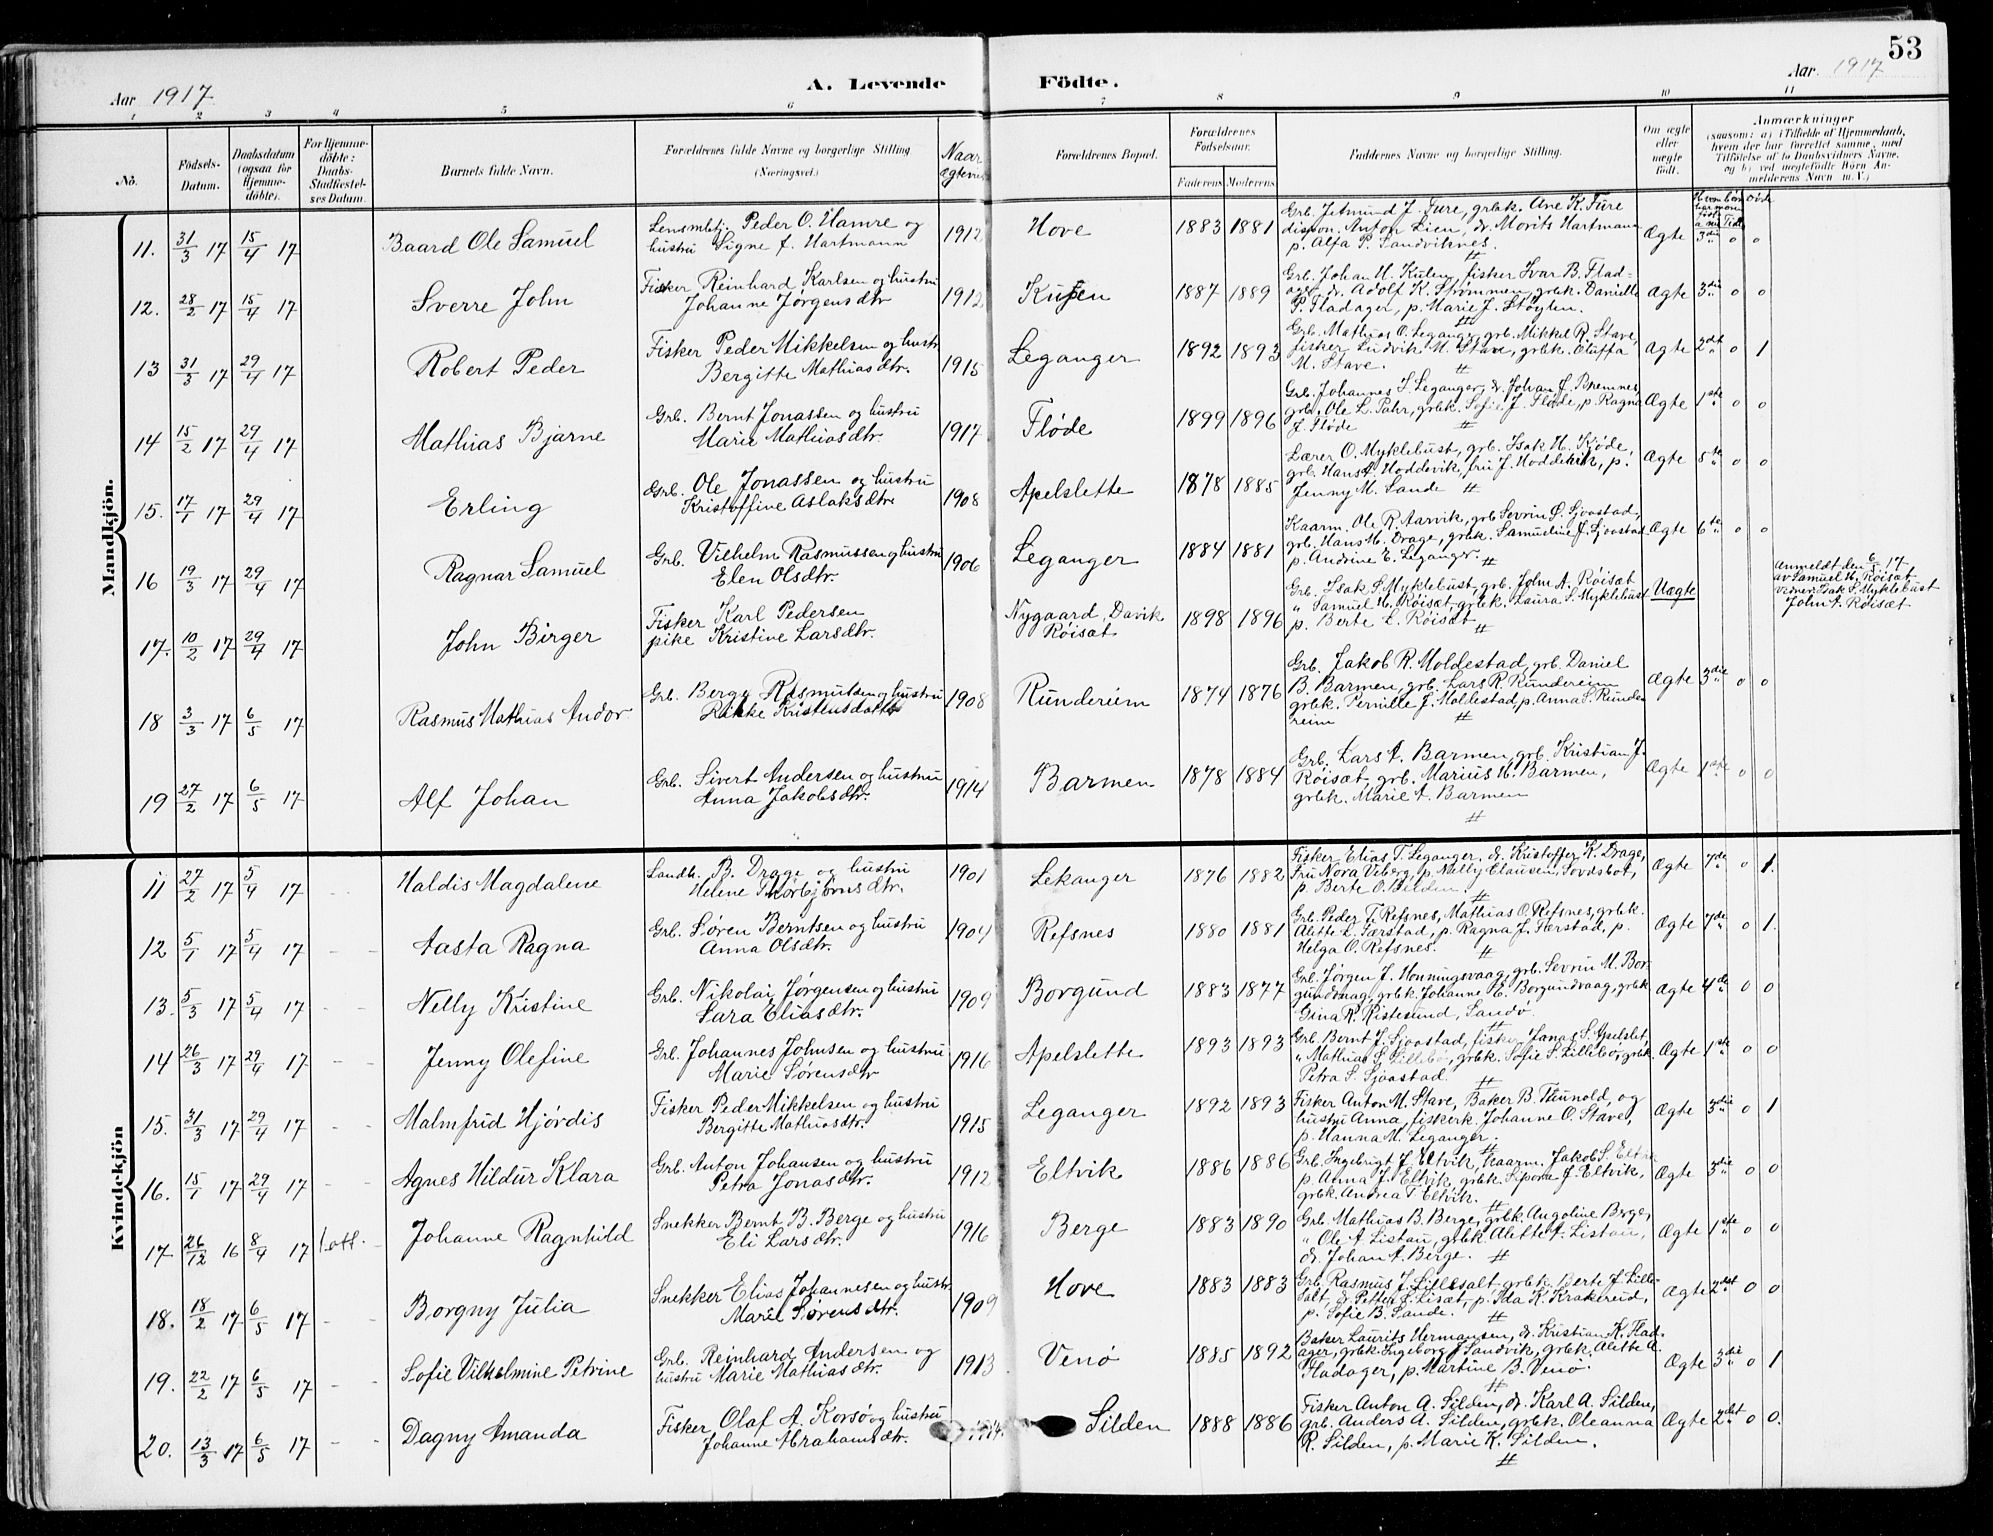 53
A. Levende Födte.
Aar 1917
Aar 1917
1 2 3 4 5 6 7 8 9 10 11
No.
Födsels-Datum.
Daabsdatum (ogsaa for Hjemmedöbte).
For Hjemmedöbte: Daabs-Stadfæstelses Datum.
Barnets fulde Navn.
Forældrenes fulde Navne og borgerlige Stilling (Næringsvei.)
Naar
Forældrenes Bopæl.
Forældrenes Födselsaar.
Faderens Moderens
Faddernes Navne og borgerlige Stilling.
Om ægte eller uægte födt.
Anmærkninger
(saasom: a) i Tilfælde af Hjemmedaab, hvem der har forrettet samme, med Tilföielse af to Daabsvidners Navne, og b) ved uægtefödte Börn Anmelderens Navn m. V.)
Mandkjön.
11. 31/3 17 15/4 17 Baard Ole Samuel
Lensmbtj. Peder O. Hamre og
hustru Signe f. Hartmann 1912 Hove 1883 1881
Grb. Jetmund J. Ture, grbk. Ane K. Ture
dispon. Anton Lien, dr. Morits Hartmann
p. Alfa P. Sandviknes. Ægte 3die 0 0
12. 28/2 17 15/4 17 Sverre John
Fisker Reinhard Karlsen og hustru
Johanne Jørgensdtr 1912 1887 1889
Grb. Johan H. Kulen, fisker Ivar B. Flad-
ager, dr. Adolf K. Strømmen, grbk. Danielle
P. Fladager, p. Marie J. Støylen. Ægte 3die 0 0
13 31/3 17 29/4 17 Robert Peder
Fisker Peder Mikkelsen og hustr.
Bergitte Mathiasdtr. 1915 Leganger 1892 1893
Grb. Mathias O. Leganger, grb. Mikkel R. Stave,
fisker Ludvik M. Stave, grbk. Oluffa
M. Stave. Ægte 2det 0 1
14 15/2 17 29/4 17 Mathias Bjarne
Grb. Bernt Jonassen og hustru
Marie Mathiasdtr. 1917 Fløde 1899 1896
Grb. Johannes S. Leganger, dr. Johan J. Bremnes,
grb. Ole L. Pahr, grbk. Sofie J. Fløde, p. Ragna
J. Fløde Ægte 1ste 0 0
15. 17/1 17 29/4 17 Erling
Grb. Ole Jonassen og hustru
Kristoffine Aslaksdtr. 1908 Apelslette 1878 1885
Lærer O. Myklebust, grb. Isak H. Kjøde,
grb. Hans A. Hoddevik, fru J. Hoddevik, p.
Jenny M. Sande Ægte 5te 0 0
16 19/3 17 29/4 17 Ragnar Samuel
Grb. Vilhelm Rasmussen og hustru
Elen Olsdtr. 1906 Leganger 1884 1881
Kaarm. Ole R. Aarvik, grb Sevrin S. Sjoastad,
grb. Hans M. Drage, grbk. Samueline J. Sjoastad
p. Andrine E. Leganger Ægte 6te 0 0
17. 10/2 17 29/4 17 John Birger
Fisker Karl Pedersen
pike Kristine Larsdtr. Nygaard, Davik
Røisæt 1898 1896
Grb. Isak S. Myklebust, grb. John A. Røisæt
" Samuel H. Røisæt, grbk. Laura S. Myklebust
p. Berte L. Røisæt Uægte
Anmeldt den 6/5 17
av Samuel H. Røisæt
vidner: Isak S. Myklebust
John A. Røisæt
18 3/3 17 6/5 17 Rasmus Mathias Andor
Grb. Berge Rasmussen og hustru
Rikke Kristensdatter 1908 Runderéim 1874 1876
Grb. Jakob R. Moldestad, grb. Daniel
B. Barmen, grb. Lars R. Runderéim
grbk. Pernille J. Moldestad, p. Anna S. Runde-
reim Ægte 3die 0 0
19 27/2 17 6/5 17 Alf Johan
Grb. Sivert Andersen og hustru
Anna Jakobsdtr. 1914 Barmen 1878 1884
Grb. Lars A. Barmen, grb. Kristian J.
Røisæt, grb. Marius H. Barmen,
grbk. Marie A. Barmen Ægte 1ste 0 0
Kvindekjön
11 27/2 17 5/4 17 Haldis Magdalene
Landh. B. Drage og hustru
Helene Thorbjørnsdtr. 1901 Lekanger 1876 1882
Fisker Elias T. Leganger, dr. Kristoffer K. Drage,
Fru Nora Veberg, p. Nelly Clausen,
p. Berte O. Silden. Ægte 7de 0 1.
12 5/1 17 5/4 17 Aasta Ragna
Grb. Søren Berntsen og hustru
Anna Olsdtr. 1904 Refsnes 1880 1881
Grb. Peder T. Refsnes, Mathias O. Refsnes, grbk.
Alette L. Færstad, p. Ragna J. Færstad, p.
Helga O. Refsnes. Ægte 7de 0 1.
13. 5/3 17 5/4 17 Nelly Kristine
Grb. Nikolai Jørgensen og hustru
Sara Eliasdtr. 1909 Borgund 1883 1877
Grb. Jørgen J. Honningsvaag, grb. Sevrin M. Bor-
gundvaag, grbk. Johanne E. Borgundvaag, grbk
Gina R. Ristesund, Sandø. Ægte 4de 0 0
14 26/3 17 29/4 17 Jenny Olefine
Grb. Johannes Johnsen og hustru
Marie Sørensdtr 1916 Apelslette 1893 1893
Grb. Bernt J. Sjoastad, fisker Janas S. Apelslet,
" Mathias S. Lillebø, grbk. Sofie S. Lillebø, grbk.
Petra S. Sjoastad. Ægte 1ste 0 0
15. 31/3 17 29/4 17 Malmfrid Hjørdis
Fisker Peder Mikkelsen og hustru
Bergitte Mathiasdtr. 1915 Leganger 1892 1893
Fisker Anton M. Stave, Baker B. Taunold, og
hustru Anna, fiskerk. Johanne O. Stave,
p. Hanna M. Leganger. Ægte 3die 0 1
16. 15/1 17 29/4 17 Agnes Hildur Klara
Grb. Anton Johansen og hustru
Petra Jonasdtr. 1912 Eltvik 1886 1886
Grb. Ingebrigt J. Eltvik, kaarm. Jakob S. Eltvik
p. Anna J. Eltvik, grbk. Sipora J. Eltvik,
grbk. Andrea T. Eltvik. Ægte 3die 0 0
17. 26/12 16 8/4 17 Johanne Ragnhild
Snekker Bernt B. Berge og hustru
Eli Larsdtr. 1916 Berge 1883 1890
Grb. Mathias B. Berge, grbk. Angoline Berge,
" Ole A. Listau, grbk. Alette A. Listau,
dr. Johan A. Berge. Ægte 1ste 0 0
18. 18/2 17 6/5 17 Borgny Julia
Snekker Elias Johannesen og hustr.
Marie Sørensdtr. 1909 Hove 1883 1883
Grb. Rasmus J. Lillesalt, grbk. Berte J. Lille-
salt, dr. Petter J. Lisæt, p. Ida K. Krakereid,
p. Sofie B. Sande. Ægte 2det 0 0
19. 22/2 17 6/5 17 Sofie Vilhelmine Petrine
Grb. Reinhard Andersen og
hustru Marie Mathiasdtr. 1913 Venø 1885 1892
Baker Laurits Hermansen, dr. Kristian K. Flad-
ager, grbk. Ingeborg J. Sandvik, grbk. Alette A.
Fladager, p. Martine B. Venø. Ægte 3die 0 1
20. 13/3 17 6/5 17 Dagny Amanda
Fisker Olaf A. Korsø og hustru
Johanne Abrahamsdtr. 1914 Silden 1888 1886
Fisker Anton A. Silden, dr. Karl A. Silden,
grb. Anders A. Silden, grbk. Oleanna
R. Silden, p. Marie K. Silden. Ægte 2det 0 0.